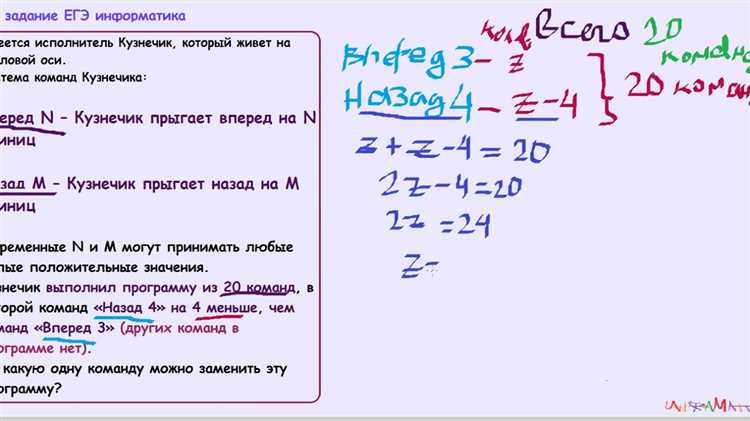 задание ЕГЭ информатика
еется исполнитель Кузнечик, который живет на
ловой оси.
тема команд Кузнечика:
еред N – Кузнечик прыгает вперед на N
иниц
зад M – Кузнечик прыгает назад на M
иниц
ременные N и M могут принимать любые
лые положительные значения.
знечик выполнил программу из 20 команд, в
торой команд «Назад 4» на 4 меньше, чем
манд «Вперед 3» (других команд в
ограмме нет).
какую одну команду можно заменить эту
ограмму?
Всего 20
команд
Вперед 3 – z
Назад 4 – z – 4
20 команд
z + z – 4 = 20
2z – 4 = 20
2z = 24
z =